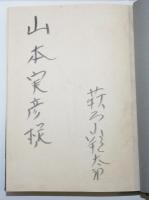 山本実彦様
萩原朔太郎